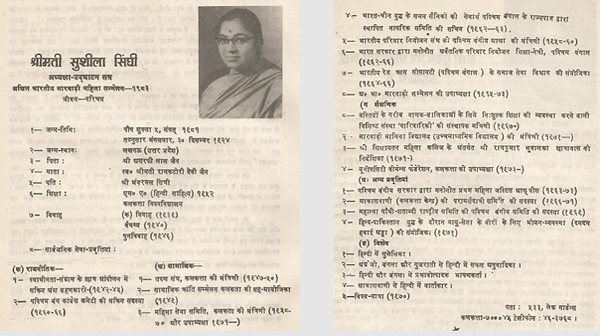 श्रीमती सुशीला सिंघी
अध्यक्षा-उद्घाटन सत्र
अखिल भारतीय मारवाड़ी महिला सम्मेलन—१९८३
जीवन—परिचय
१— जन्म-तिथि: पौष शुक्ला ५, संवत् १९८१
तदनुसार मंगलवार, ३० दिसम्बर १९२४
२— जन्म-स्थान: लखनऊ (उत्तर प्रदेश)
३— पिता: श्री लाल जैन
४— माता: स्व० श्रीमती रामकटोरी देवी जैन
५— पति: श्री भंवरमल सिंघी
६— शिक्षा: एम० ए० (हिन्दी साहित्य) १९५२
कलकत्ता विश्वविद्यालय
७— विवाह (क) विवाह (१९३९)
वैधव्य (१९४०)
पुनर्विवाह (१९४६)
८— सार्वजनिक सेवा-प्रवृत्तियां:
(क) राजनीतिक—
१— स्वाधीनता-संग्राम के छात्र आंदोलन में
सक्रिय भाग ग्रहणकारी-(१९४२-४५)
२— पश्चिम बंग कांग्रेस कमेटी की सक्रिय सदस्या
(१९६०-६६)
(ख) सामाजिक—
१— तरुण संघ, कलकत्ता की मंत्रिणी (१९४७-५०)
२— सामाजिक क्रांति सम्मेलन कलकत्ता की सह-प्रायोजिका
(१९४८)
३— महिला सेवा समिति, कलकत्ता की मंत्रिणी (१९५८-
७० और उपाध्यक्षा १९७१—)
४— भारत-चीन युद्ध के समय सैनिकों की सेवार्थ पश्चिम बंगाल के राज्यपाल द्वारा
स्थापित नागरिक समिति की सचिव (१९६२—६३).
५— भारतीय परिवार नियोजन संघ की पश्चिम बंगीय शाखा की मंत्रिणी (१९५८-६०)
६— भारत सरकार द्वारा मनोनीत अवैतनिक परिवार नियोजन शिक्षा-नेत्री, पश्चिम बंगाल
(१९६२-६६)
७— भारतीय रेड क्रास सोसायटी (पश्चिम बंगाल) के समाज सेवा विभाग की संयोजिका
(१९६४-६६)
८— अ० भा० मारवाड़ी सम्मेलन की उपाध्यक्षा (१९६८-७३)
ग शैक्षणिक
१— बस्तियों के गरीब बालक-बालिकाओं के लिये निःशुल्क शिक्षा की व्यवस्था करने वाली
विशिष्ट संस्था 'पारिवारिकी' की संस्थापक मंत्रिणी (१९६७-)
२— मारवाड़ी बालिका विद्यालय (उच्चमाध्यमिक विद्यालय) की मंत्रिणी (१९७१—)
३— श्री शिक्षायतन महिला कालिज के अंतर्गत श्री रायकुमार भुवालका छात्रावास की
निर्देशिका (१९७१-)
४— यूनीवर्सिटी वीमेन्स फेडरेशन, कलकत्ता की उपाध्यक्षा (१९७१-)
(घ) अन्य प्रवृत्तियां
१— पश्चिम बंगीय सरकार द्वारा मनोनीत प्रथम महिला जस्टिस आफ पीस (१९६२-७३)
२— आकाशवाणी (कलकत्ता केन्द्र) की परामर्शदात्री समिति की सदस्या (१९६६-७१)
३— महात्मा गाँधी-शताब्दी राष्ट्रीय समिति की पश्चिम बंगीय समिति की सदस्या (१९६९)
४— हिन्द-पाकिस्तान युद्ध के दौरान वायु-सेना के वीरों के लिए भोजन-व्यवस्था (दमदम
हवाई अड्डा) की संयोजिका (१९७१)
(ङ) विशेष
१— हिन्दी में सुलेखिका।
२— अंग्रेजी, बंगला और गुजराती से हिन्दी में सफल अनुवादिका।
३— हिन्दी और बंगला में प्रभावोत्पादक भाषणकर्ता।
४— आकाशवाणी से हिन्दी में वार्ताकार।
५—विश्व-यात्रा (१९७०)
पता: ५३२, लेक गार्डन्स
कलकत्ता-७०००४५ टेलीफोन: ४६-३७६८।